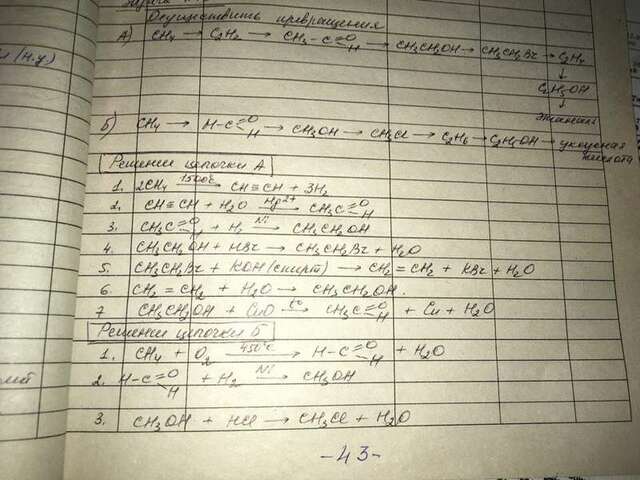 Осуществить превращения
А) CH4 → C2H2 → CH3-C=O H → CH3CH2OH → CH3CH2Br → C2H4
↓
C2H5OH
↓
этаналь
Б) CH4 → H-C=O H → CH3OH → CH3Cl → C2H6 → C2H5OH → уксусная
кислота
(н.у.)
Решение цепочки А
1. 2CH4 1500°C → CH≡CH + 3H2
2. CH≡CH + H2O Hg2+ → CH3C=O H
3. CH3C=O H + H2 Ni → CH3CH2OH
4. CH3CH2OH + HBr → CH3CH2Br + H2O
5. CH3CH2Br + KOH (спирт) → CH2=CH2 + KBr + H2O
6. CH2=CH2 + H2O → CH3CH2OH.
7 CH3CH2OH + CuO t° → CH3C=O H + Cu + H2O
Решение цепочки Б
1. CH4 + O2 450°C → H-C=O H + H2O
2. H-C=O H + H2 Ni → CH3OH
3. CH3OH + HCl → CH3Cl + H2O
-43-